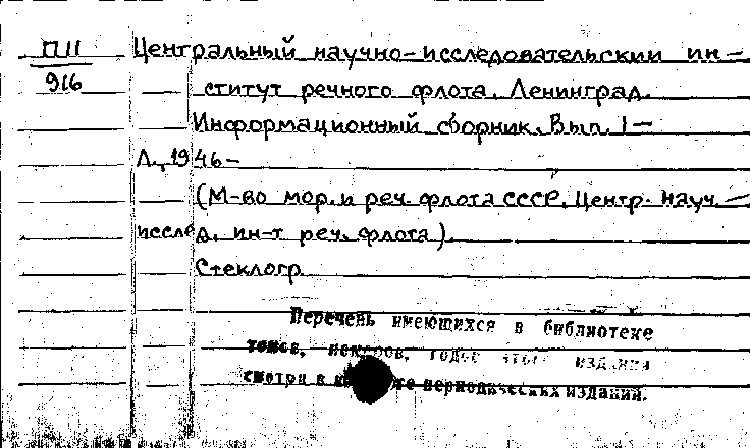 П11
916
Центральный научно-исследовательский ин-
ститут речного флота. Ленинград.
Информационный сборник. Вып. 1-
Л., 1946-
(М-во мор. и реч. флота СССР. Центр. науч.-
исслед. ин-т реч. флота).
Стеклогр.
Перечень имеющихся в библиотеке
томов, номеров, годов этого издания
смотри в периодических изданий.